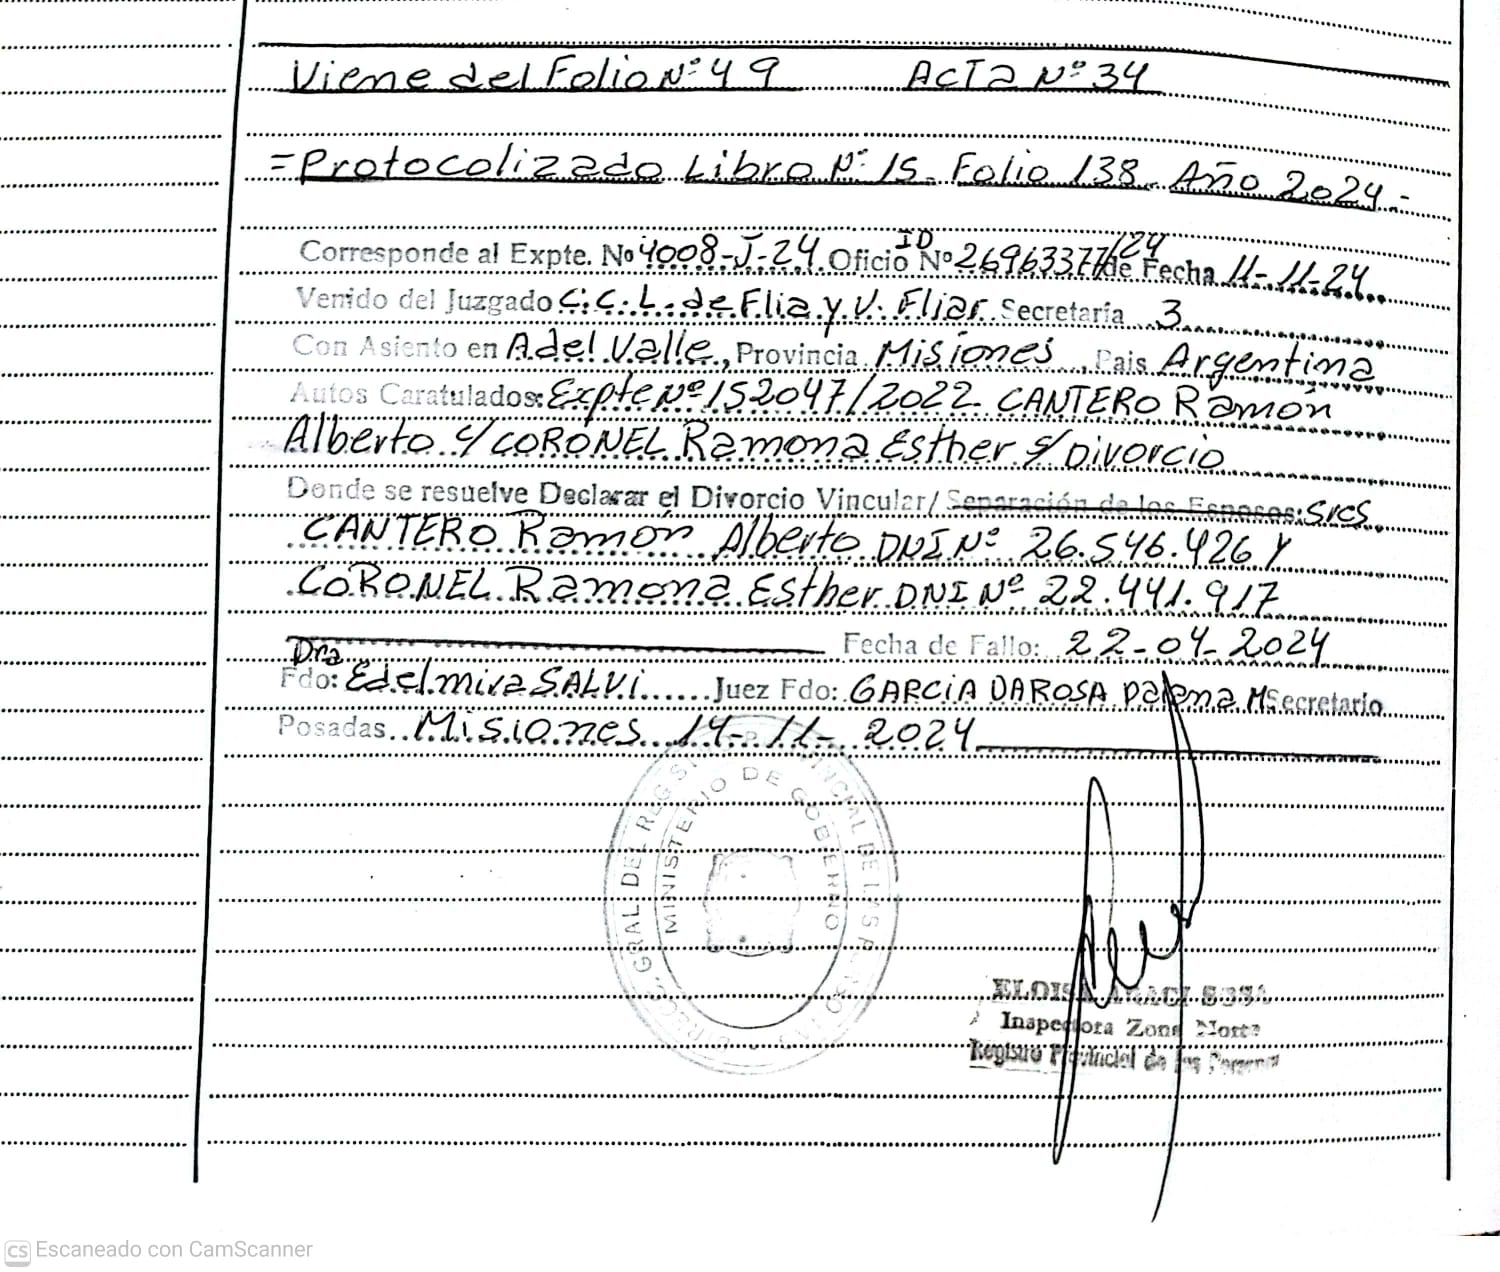 Viene del Folio Nº 49 ACTA Nº 34
=Protocolizado Libro Nº 15. Folio 138. Año 2024.-
Corresponde al Expte. No 4008-J-24 Oficio ID Nº 26963377/24 de Fecha 11-11-24
Venido del Juzgado C.C.L. de Flia y V. Fliar. Secretaría 3
Con Asiento en A del Valle, Provincia Misiones, Pais Argentina
Autos Caratulados: Expte Nº 152047/2022 CANTERO Ramón
Alberto c/ CORONEL Ramona Esther s/ Divorcio
Donde se resuelve Declarar el Divorcio Vincular/ Separación de los Esposos: Sres.
CANTERO Ramón Alberto DNI Nº 26.546.426 Y
CORONEL Ramona Esther DNI Nº 22.441.917
Fecha de Fallo: 22-04-2024
Dra
Fdo: Edelmira SALVI Juez Fdo: GARCIA DAROSA M Secretario
Posadas.. Misiones 14-11-2024
GRAL DEL REG PROVINCIAL DE LAS PERSONAS
MINISTERIO DE GOBIERNO
ELOISA ARACI SOSA
Inspectora Zona Norte
Registro Provincial de las Personas
CS Escaneado con CamScanner